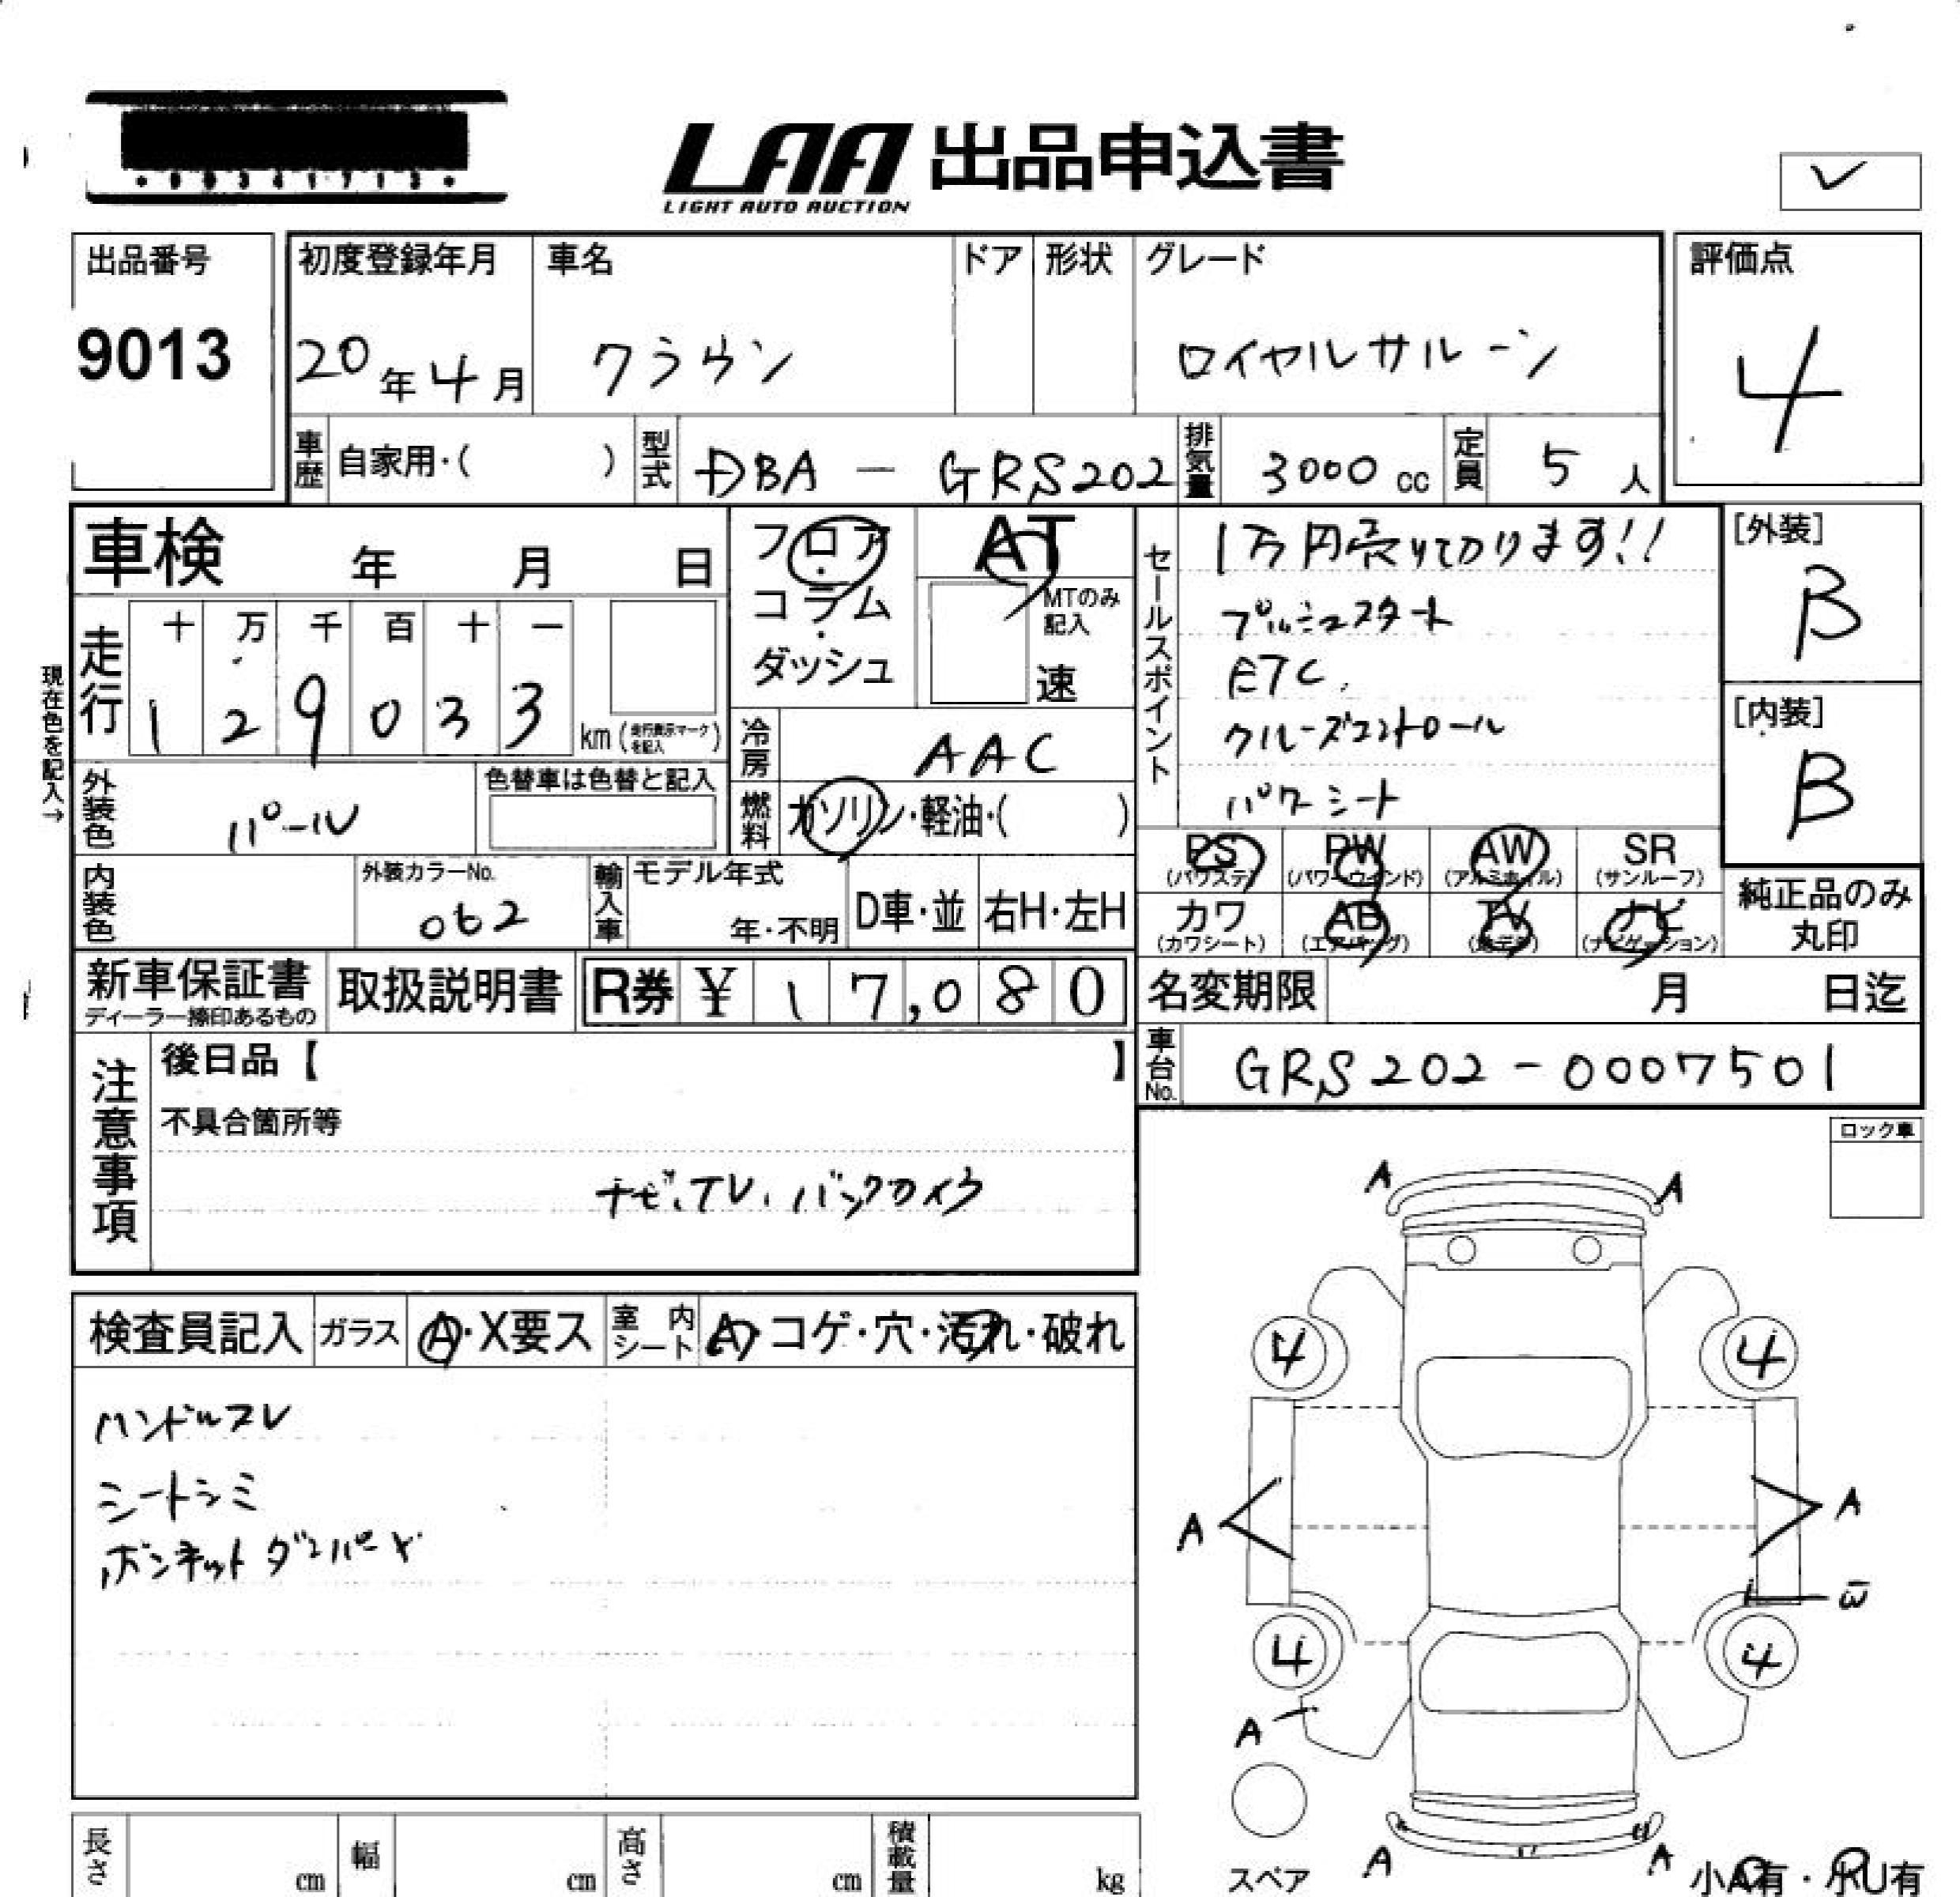 LAA 出品申込書
LIGHT AUTO AUCTION
出品番号
9013
初度登録年月
20年4月
車名
クラウン
ドア
形状
グレード
ロイヤルサルーン
評価点
4
車歴
自家用・( )
型式
DBA - GRS202
排気量
3000 cc
定員
5 人
車検 年 月 日
フロア・コラム・ダッシュ
AT
MTのみ記入
速
セールスポイント
1万円売り切ります!!
プッシュスタート
ETC.
クルーズコントロール
パワーシート
[外装]
B
[内装]
B
現在色を記入→
走行
十 万 千 百 十 一
1 2 9 0 3 3
km (走行表示マークを記入)
冷房
AAC
外装色
パール
色替車は色替と記入
燃料
ガソリン・軽油・( )
内装色
外装カラーNo.
062
輸入車
モデル年式
年・不明
D車・並
右H・左H
PS (パワステ)
PW (パワーウインド)
AW (アルミホイル)
SR (サンルーフ)
カワ (カワシート)
AB (エアバッグ)
TV (地デジ)
ナビ (ナビゲーション)
純正品のみ丸印
新車保証書
ディーラー捺印あるもの
取扱説明書
R券 ¥ 17,080
名変期限 月 日迄
車台No.
GRS202-0007501
注意事項
後日品【 】
不具合箇所等
ナビ、TV、バックカメラ
ロック車
検査員記入
ガラス
A・X要ス
室内シート
A・コゲ・穴・汚れ・破れ
ハンドルスレ
シートシミ
ボンネットダンパーX
A A
4 4
A A
W
4 4
A
スペア
A A
小A有・小U有
長さ cm
幅 cm
高さ cm
積載量 kg